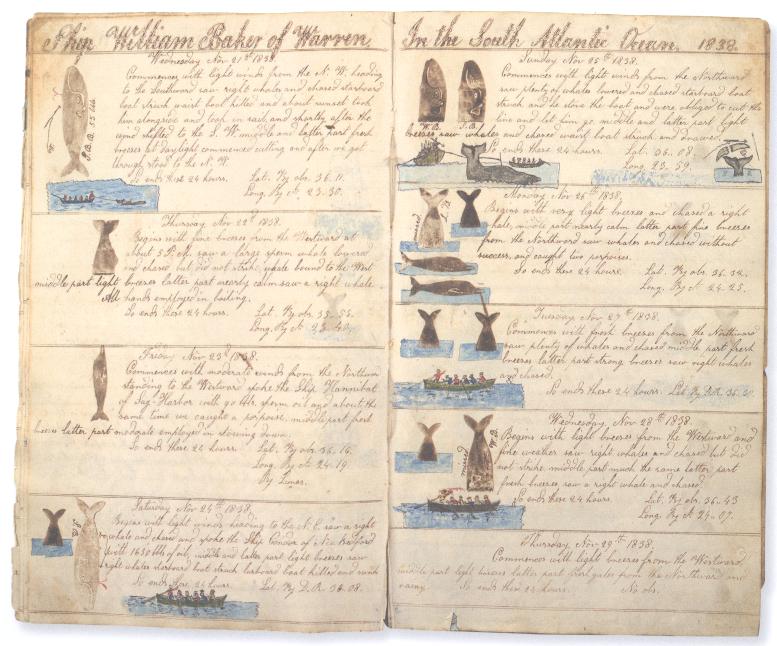 Ship William Baker of Warren.
Wednesday Nov 21st 1838.
Commences with light winds from the N. W. heading
to the Southward saw right whales and chased starboard
boat struck waist boat killed and about sunset took
him alongside and in sail, and shortly after the
wind shifted to the S. W. middle and latter part fresh
breezes at daylight commenced cutting and after we got
through stood to the N. W.
So ends these 24 hours. Lat. By obs. 36. 11.
Long. By Ct. 23. 30.
S. B. B. 55 bbls
Thursday Nov 22d 1838.
Begins with fine breezes from the Westward at
about 5 P.M. saw a large sperm whale lowered
and chased but did not strike, whale bound to the West
middle part light breezes latter part nearly calm saw a right whale.
All hands employed in boiling.
So ends these 24 hours. Lat. By obs. 35. 55.
Long. By Ct. 23.
Friday Nov 23d 1838.
Commences with moderate winds from the Northward
standing to the Westward spoke the Ship Hannibal
of Sag-Harbor with 90 bbls. sperm oil and about the
same time we caught a porpoise, middle part fresh
breezes latter part moderate employed in stowing down.
So ends these 24 hours. Lat. By obs. 36. 16.
Long. By Ct. 24. 19.
By Lunar.
Saturday Nov 24th 1838.
Begins with light winds heading to the N. E. saw a right
whale and chased and spoke the Ship Condor of New Bedford
with 1650 bbls of oil, middle and latter part light breezes saw
right whales starboard boat struck larboard boat killed and sunk
So ends these 24 hours. Lat. By D. R. 36. 08.
In the South Atlantic Ocean. 1838.
Sunday Nov 25th 1838.
Commences with light winds from the Northward
saw plenty of whales lowered and chased starboard boat
struck and he stove the boat and were obliged to cut the
line and let him go, middle and latter part light
breezes saw whales and chased waist boat struck and drawed
So ends these 24 hours. Lat. 36. 08.
Long. 23. 59.
W. B. S. B.
Monday Nov 26th 1838.
Begins with very light breezes and chased a right
whale, middle part nearly calm latter part fine breezes
from the Northward saw whales and chased without
success, and caught two porpoises.
So ends these 24 hours. Lat. By obs. 36. 32.
Long. By Ct. 24. 25.
missed
Tuesday Nov 27th 1838.
Commences with fresh breezes from the Northward
saw plenty of whales and chased middle part fresh
breezes latter part strong breezes saw right whales
and chased.
So ends these 24 hours. Lat. By D.R. 36.
Wednesday Nov 28th 1838.
Begins with light breezes from the Westward and
fine weather saw right whales and chased but did
not strike middle part much the same latter part
fresh breezes saw a right whale and chased.
So ends these 24 hours. Lat. By obs. 36. 43
Long. By Ct. 24-07.
missed W. B.
Thursday Nov 29th 1838.
Commences with light breezes from the Westward,
middle part light breezes latter part fresh gales from the Northward and
rainy. So ends these 24 hours. No obs.